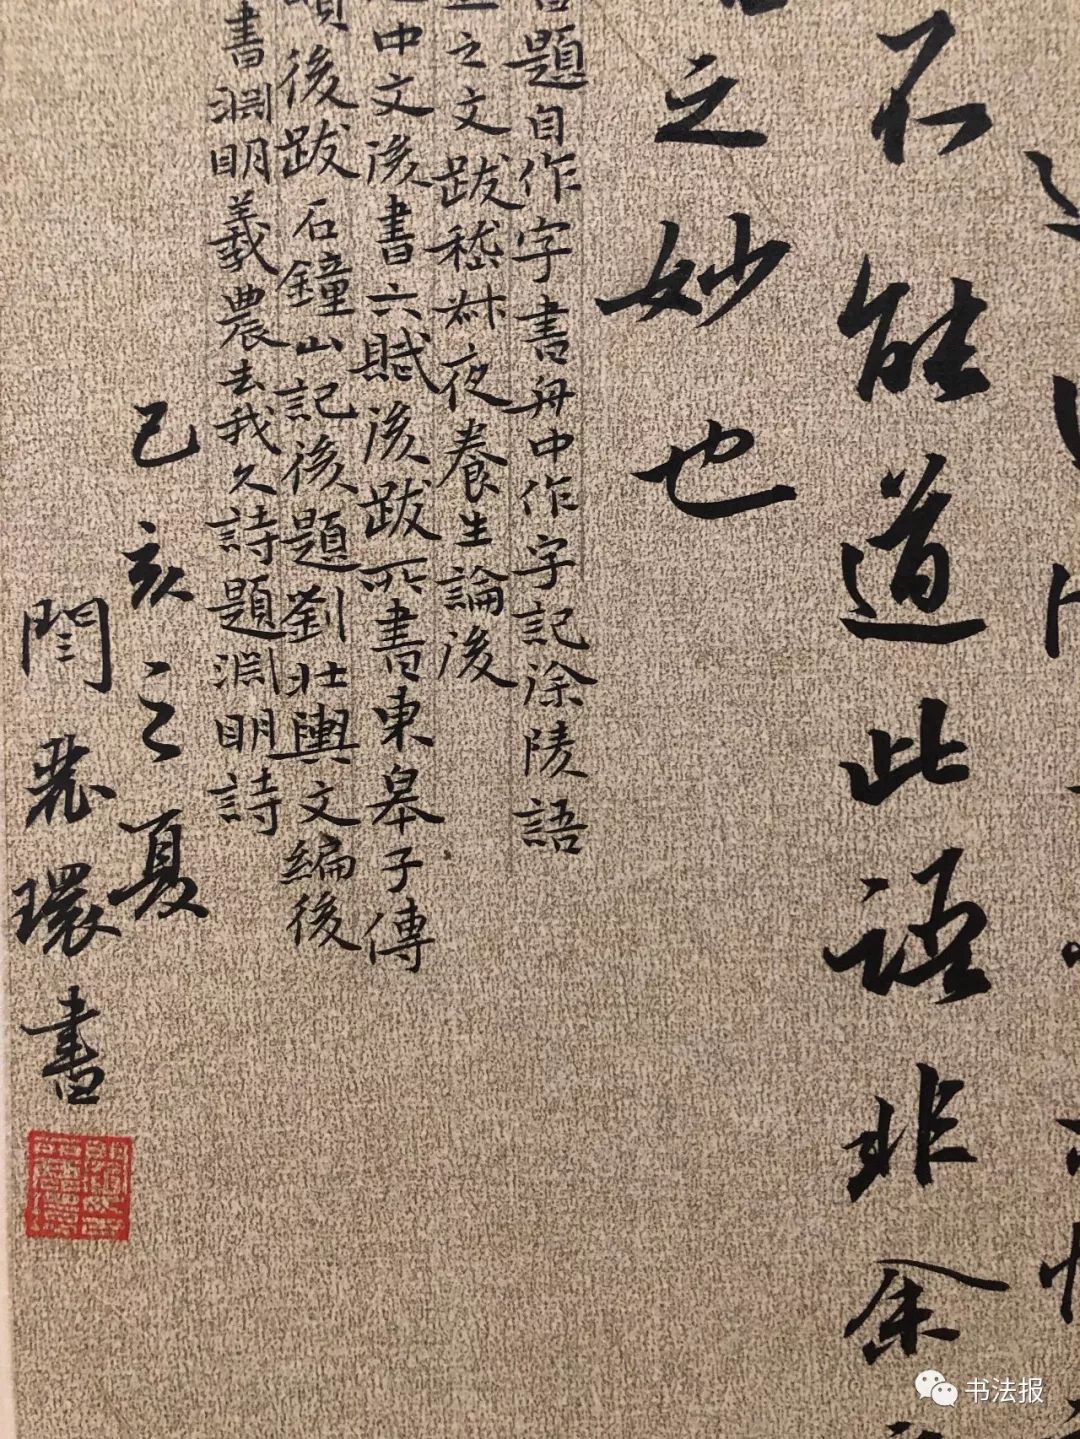 不能道此語非余
之妙也
書題自作字書舟中作字記涂陵語
之文跋嵇叔夜養生論後
中文後書六賦後跋所書東皋子傳
後跋石鐘山記後題劉壯輿文編後
書淵明羲農去我久詩題淵明詩
己亥之夏
閆 環書
书法报